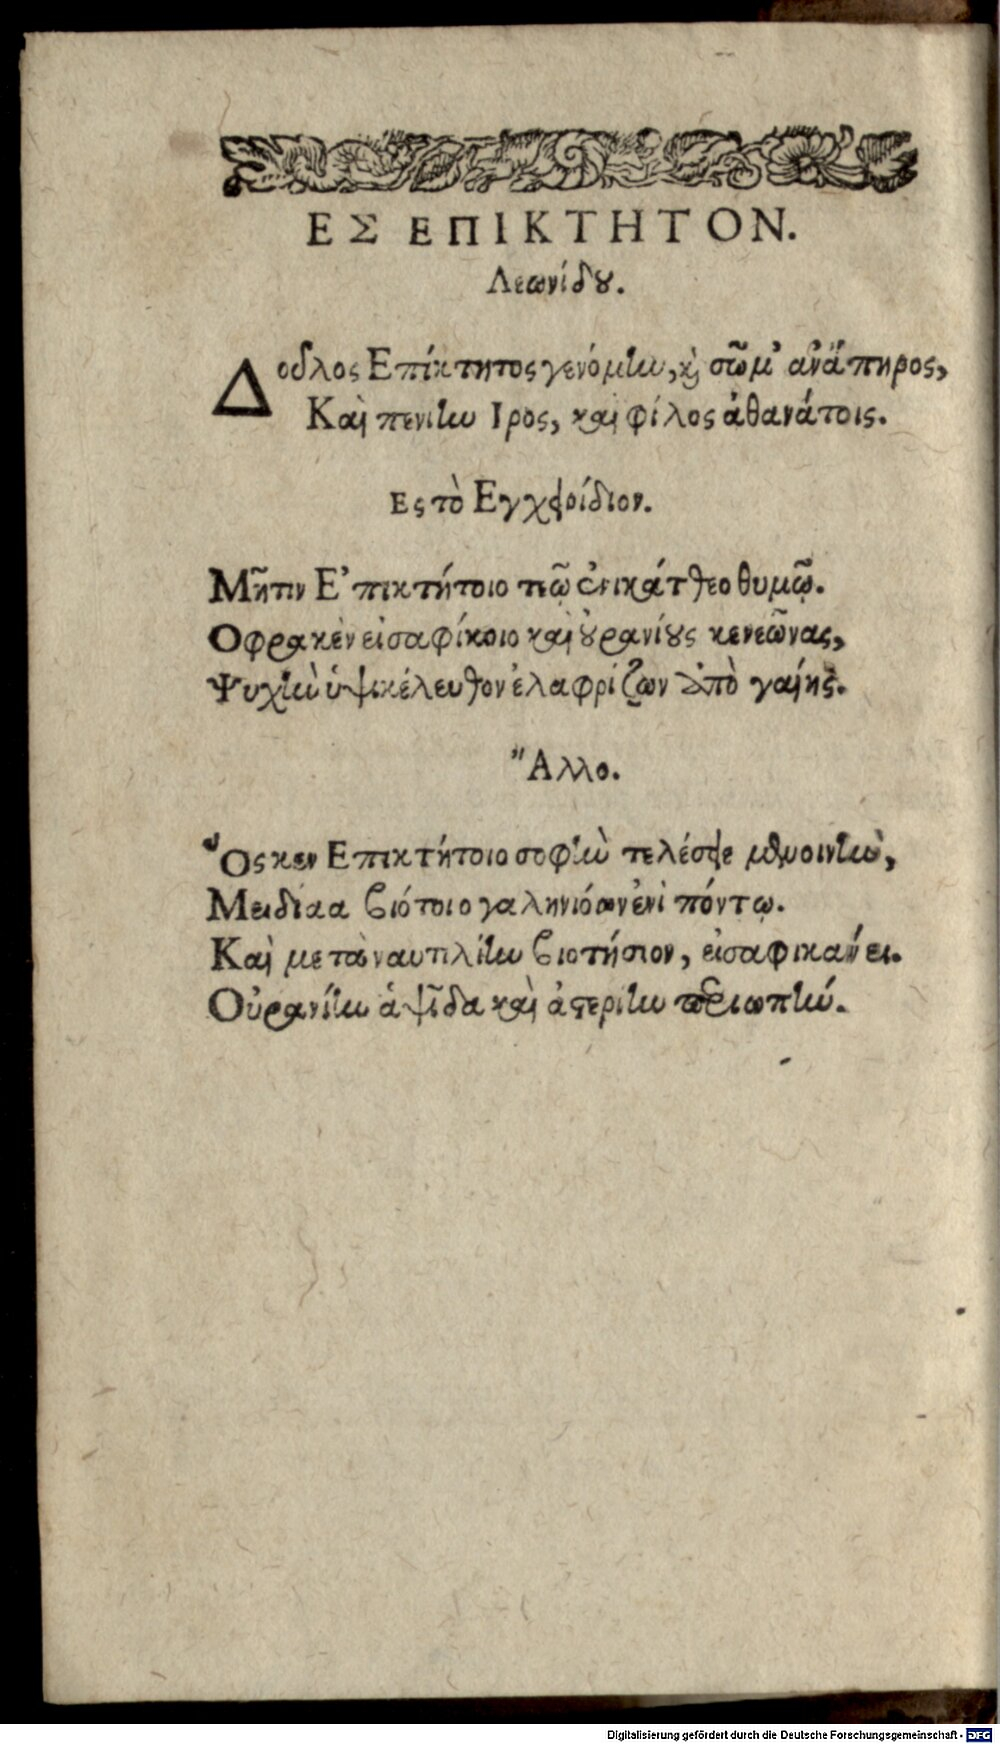 ΕΣ ΕΠΙΚΤΗΤΟΝ.
Λεωνίδου.
Δοῦλος Επίκτητος γενόμην, καὶ σῶμ' ἀνάπηρος,
Καὶ πενίην Ιρος, καὶ φίλος ἀθανάτοις.
Ες τὸ Εγχειρίδιον.
Μῆτιν Ε'πικτήτοιο τεῷ ἐνικάτθεο θυμῷ.
Οφρα κὲν εἰσαφίκοιο καὶ οὐρανίους κενεῶνας,
Ψυχὴν ὑψικέλευθον ἐλαφρίζων ἀπὸ γαίης.
Ἄλλο.
Ὅς κεν Επικτήτοιο σοφὴν τελέσειε μενοινὴν,
Μειδίαα βιότοιο γαληνιόων ἐνὶ πόντῳ.
Καὶ μετὰ ναυτιλίην βιοτήσιον, εἰσαφικάνει.
Οὐρανίην ἁψῖδα καὶ ἀστερίην περιωπήν.
Digitalisierung gefördert durch die Deutsche Forschungsgemeinschaft - DFG